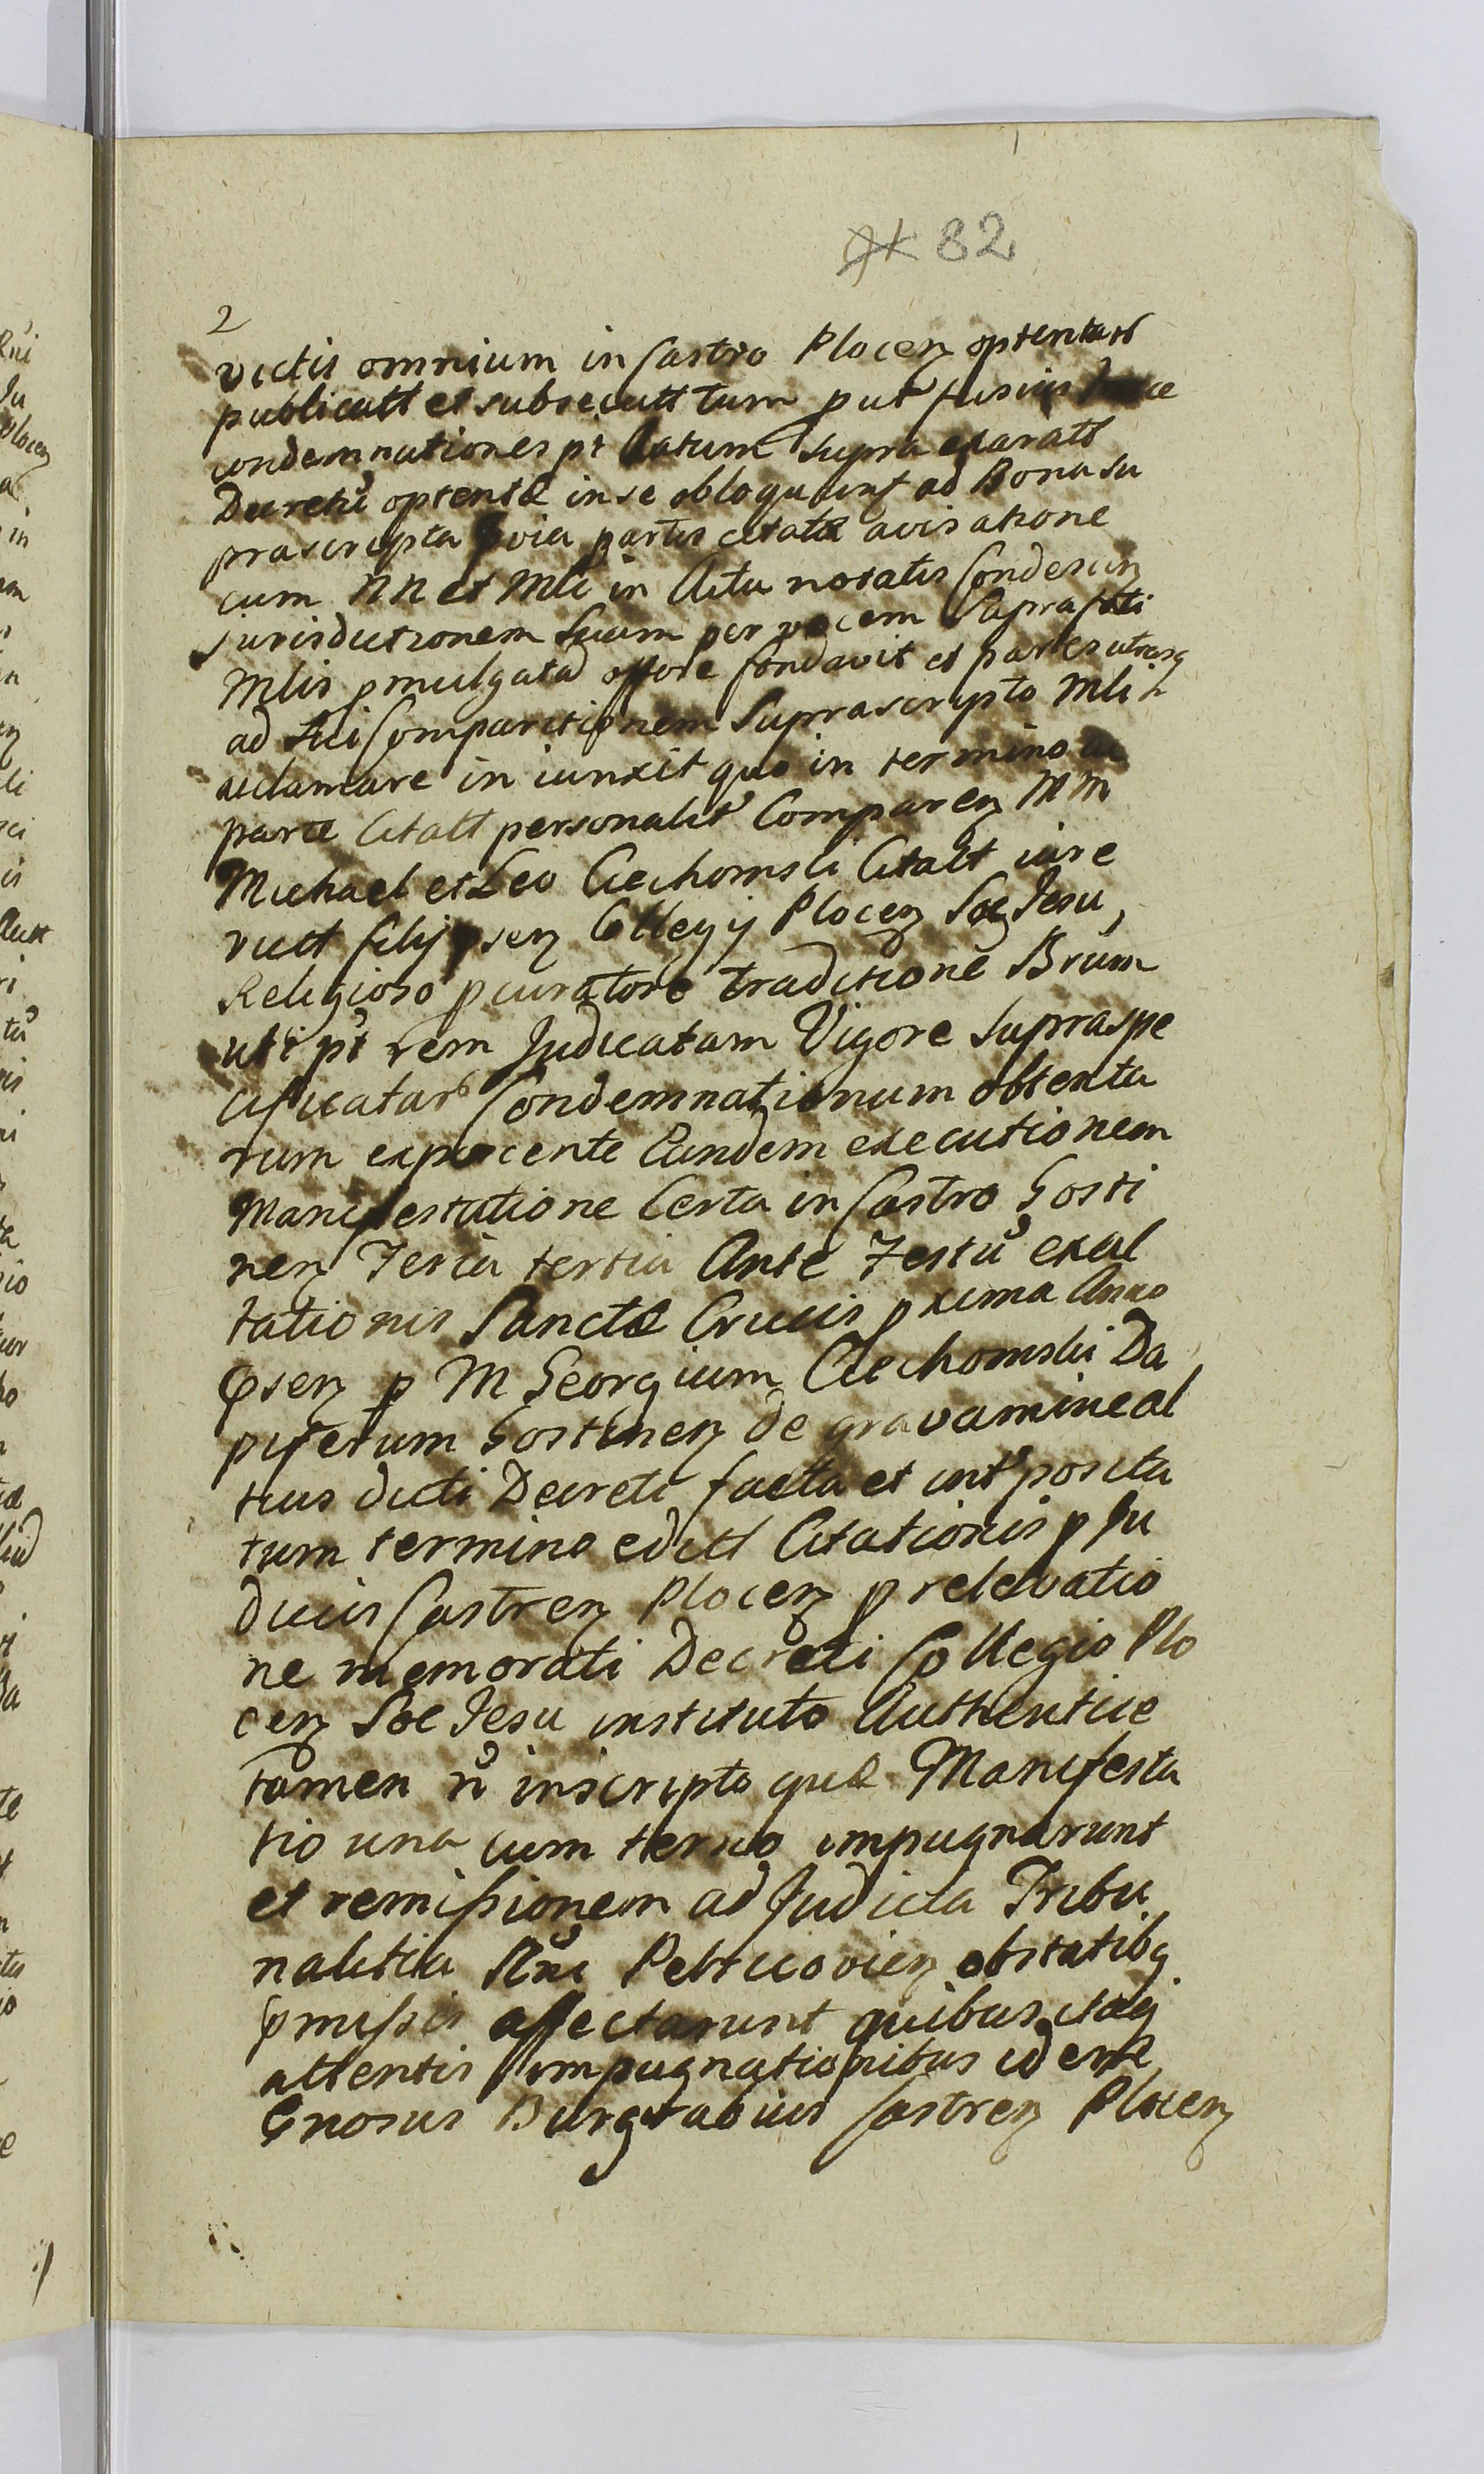 82
2
victis omnium in Castro Plocen optentarb
publicatt et subsecutt tum put fusius
condemnationes pt latum supra exaratt
Decretu optentæ in se obloquunt ad Bona su
prascripta pvia partis citatæ avisatione
cum NN et Mli in Actu notatis Condescen
Jurisdictionem Suam per vocem Suprafati
Mlis pmulgatad offore fondavit et partes utrasq
ad sui Comparitionem Suprascripto Mli
acclamare in iunxit quo in termino a
parte Citatt personalit Comparen MM
Michael et Leo Ciechomsci Citatt iure
victt filij psen Collegij Plocen Soc Jesu,
Religioso pcuratore traditione Brum
uti pt rem Judicatam Vigore supraspe
cificatarb Condemnationum obtenta
rum exposcente Eandem executionem
Manifestatione Certa in Castro Gosti
nen Feria tertia Ante Festu exal
tationis Sanctæ Crucis pxima Anno
psen p M Georgium Ciechomski Da
piferum Gostinen de gravamine al
tius dicti Decreti facta et intposita
tum termino editt Citationis p Ju
dicii Castren Plocen p relevatio
ne memorati Decreti Collegio Plo
cen Soc Jesu instituto Authentice
tamen n inscripto quæ Manifesta
tio una cum termo impugnarunt
et remissionem ad Judicia Tribu
nalitia Rni Petricovien obstatibq
pmissis affectarunt quibus itaq
attentis impugnationibus idem
Gnosus Burgrabius Castren Plocen